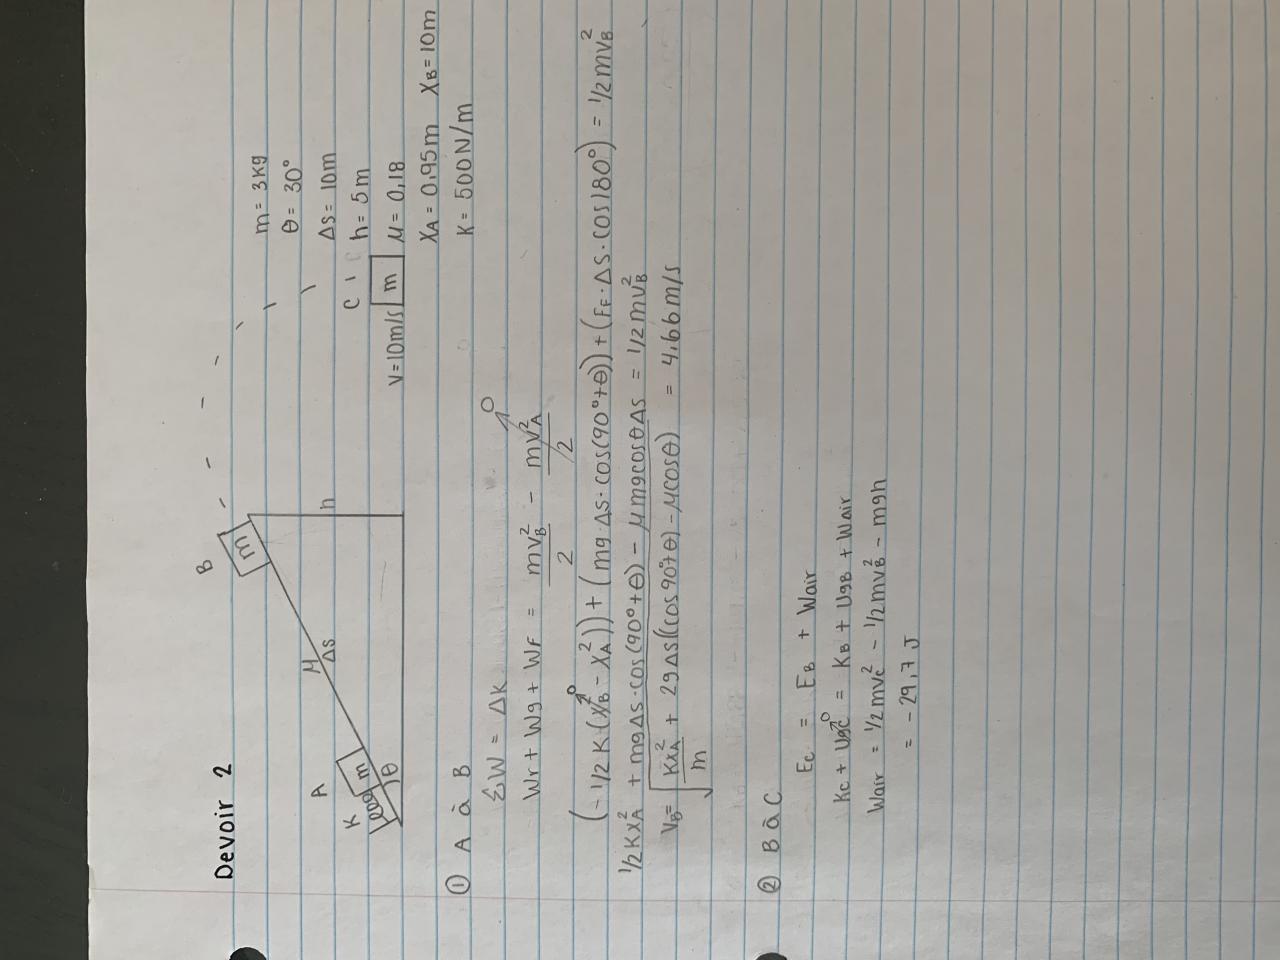 Devoir 2
A
K
m
θ
M
Δs
B
m
h
C
V=10m/s
m
m= 3kg
θ= 30°
Δs= 10m
h= 5m
μ= 0,18
XA= 0,95m XB=10m
K= 500N/m
① A à B
ΣW = ΔK
Wr + Wg + WF = mvB²/2 - mvA²/2 0
(-1/2 K (XB² 0 - XA²)) + (mg·Δs·cos(90°+θ)) + (FF·Δs·cos180°) = 1/2mvB²
1/2KXA² + mgΔs·cos(90°+θ) - μmgcosθΔs = 1/2mvB²
VB= √KXA²/m + 2gΔs((cos90°+θ)-μcosθ) = 4,66m/s
② B à C
EC = EB + Wair
KC + UgC 0 = KB + UgB + Wair
Wair = 1/2mvC² - 1/2mvB² - mgh
= -29,7 J